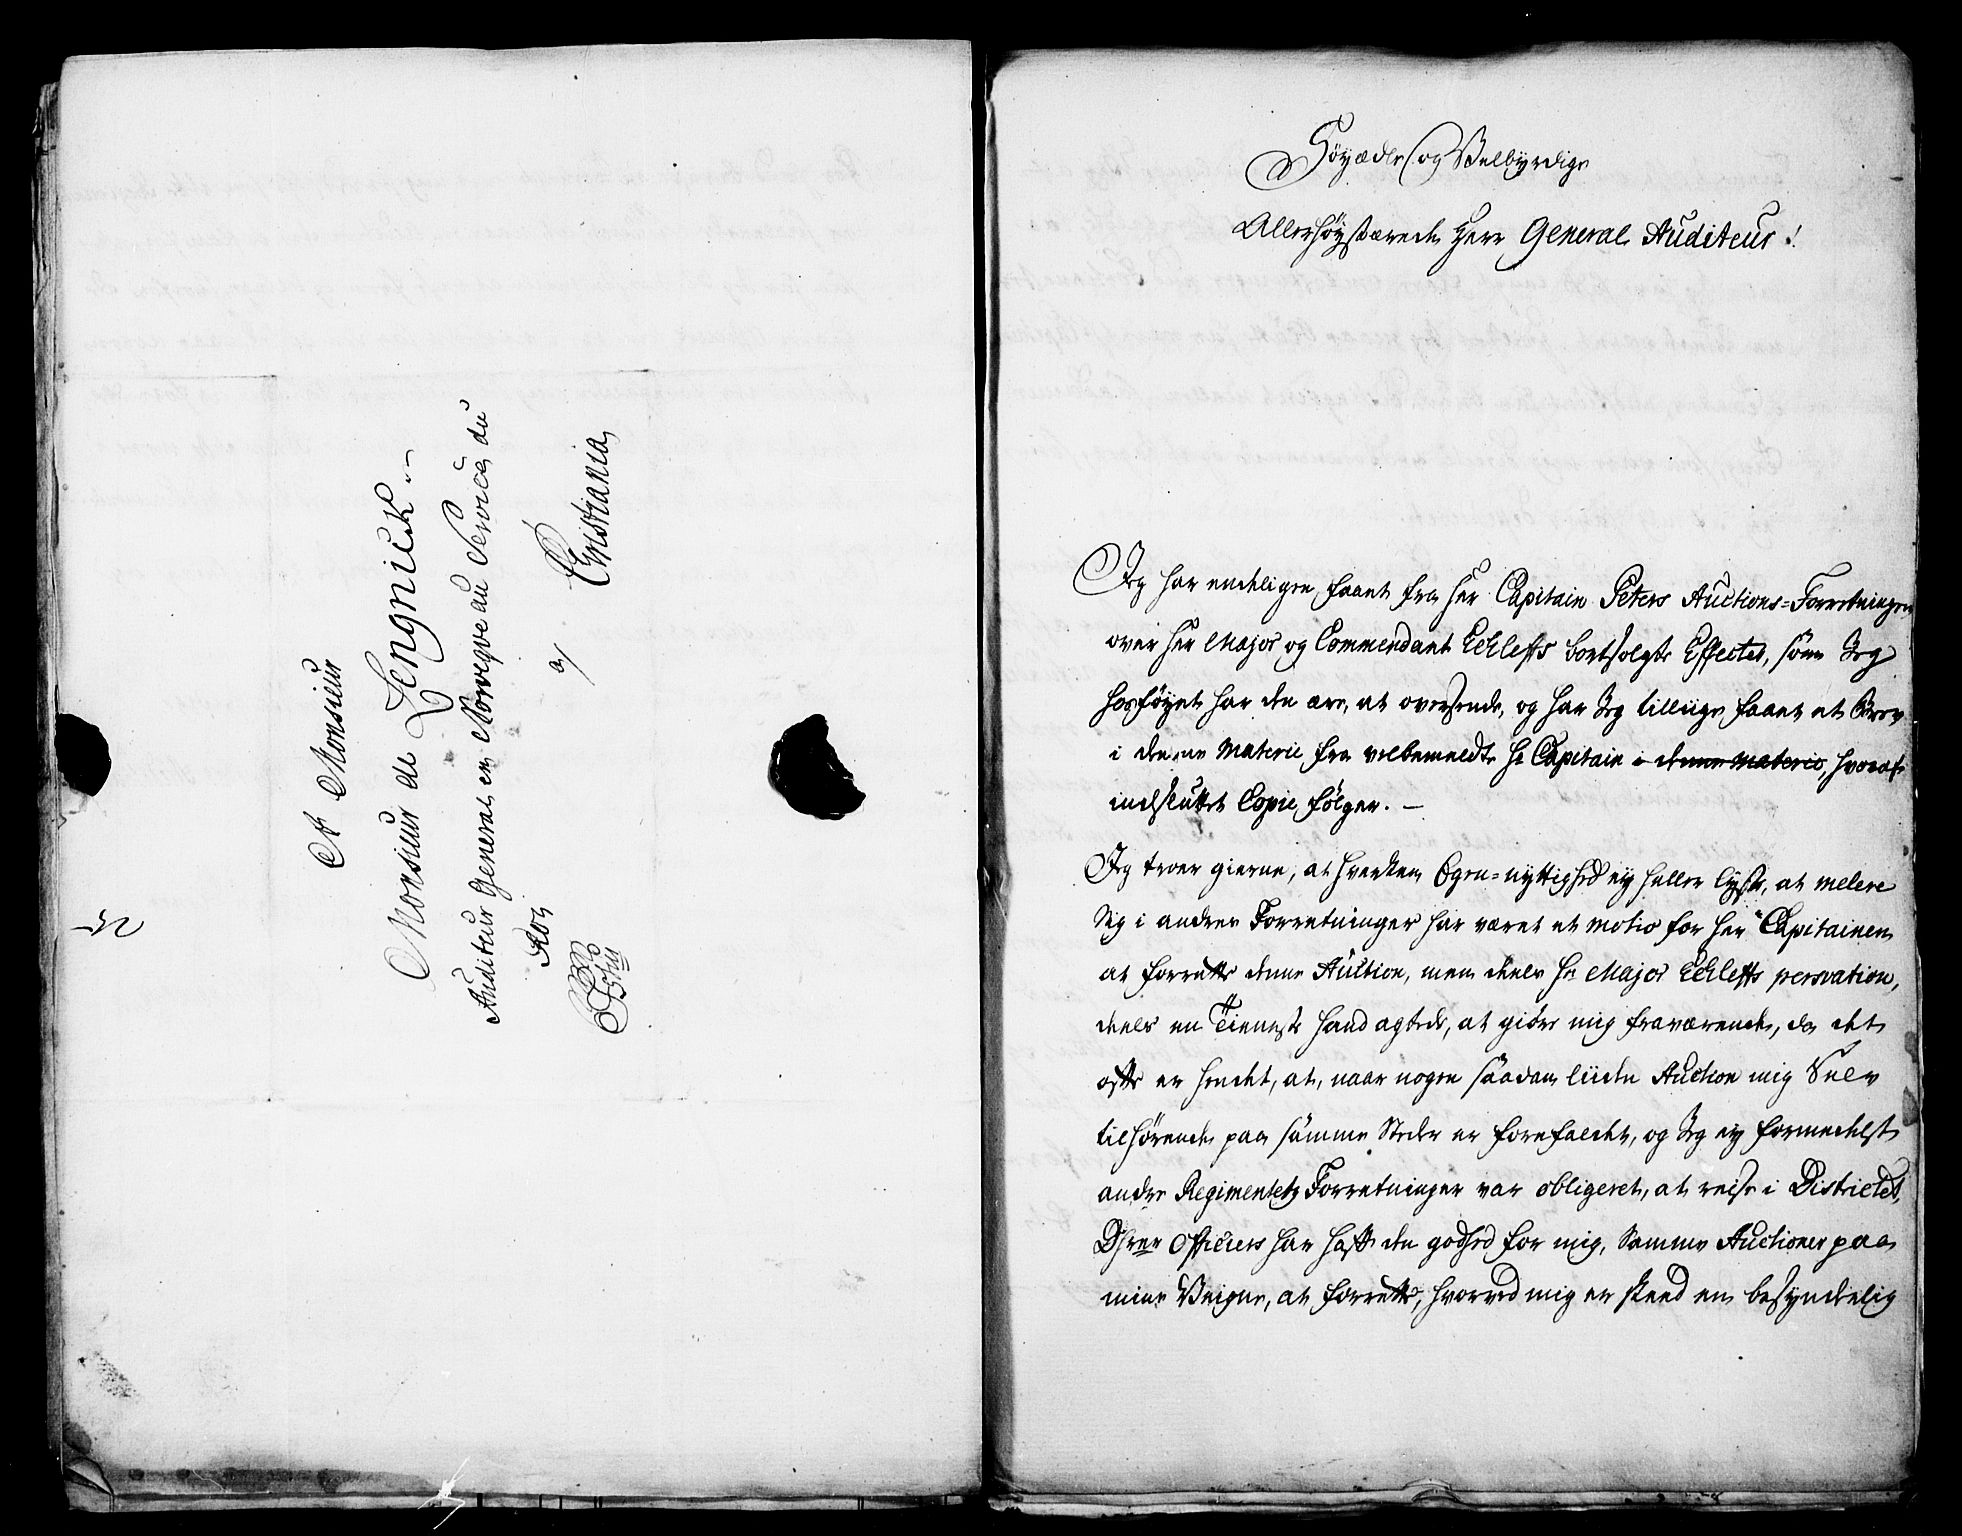 A Monsieur
Monsieur de Lengnick
Auditeur General en Norvegve au Service du
Roy
a/ Christiania
Höyædle og Velbyrdige
Allerhöystærede Herr General Auditeur!
Jeg har endeligen faaet fra Her Capitain Peters Auctions=Forretningen
over Her Major og Commendant Eckleffs bortsolgte Effecter, som Jeg
hosföyet har den ære, at oversende, og har Jeg tilliige faaet et Brev
i denne Materie fra velbemeldte Hr Capitain i denne Materie, hvoraf
indsluttet Copie fölger. —
Jeg troer gierne, at hverken Egen=nyttighed ey heller Lyst, at melere
Sig i andres Forretninger har været et motiv for Her Capitainen
at forrette denne Auction, men deels Hr Major Eckleffs persvation,
deels en Tieneste hand agtede, at giöre mig fraværende, da det
offte er hendet, at, naar nogen saadan liiden Auction mig Selv
tilhörende paa samme Steder er forefaldet, og Jeg ey formedelst
andre Regimentetz Forretninger var obligeret, at reise i Districtet,
Dhrer Officiers har hafft den godhed for mig, Samme Auctioner paa
mine Veigne, at forrette, hvorved mig er skeed en besynderlig